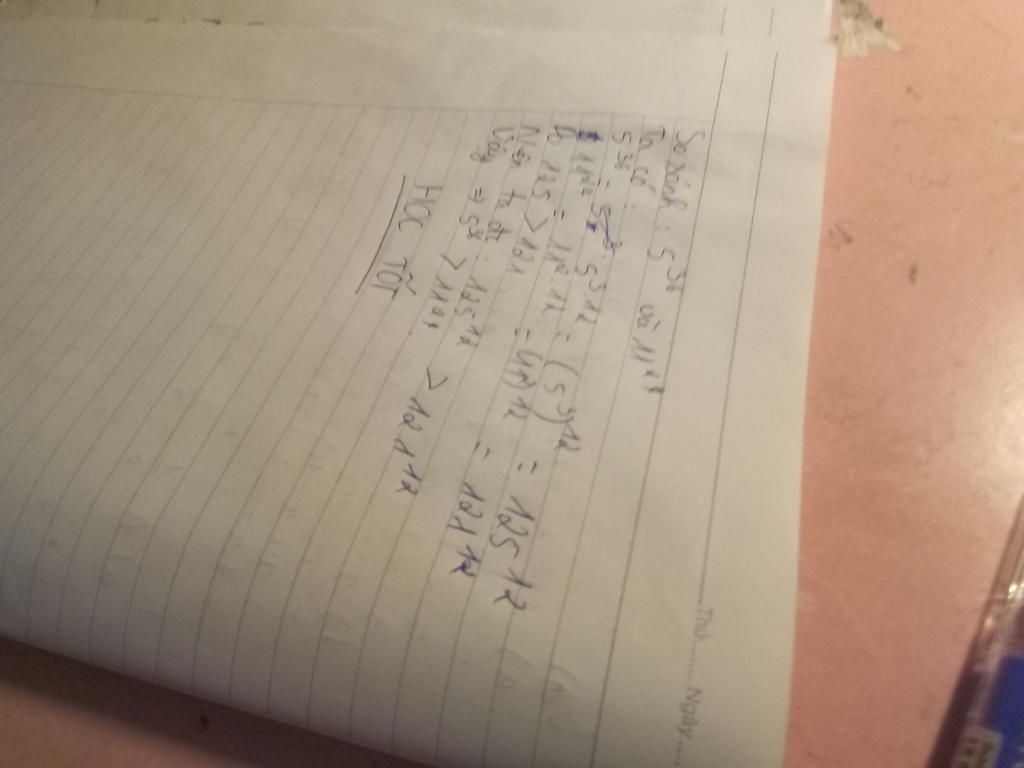 Thứ....... Ngày.....
So sánh : 5³⁶ và 11²⁴
Ta có :
5³⁶ = 5³·¹² = (5³)¹² = 125¹²
11²⁴ = 11²·¹² = (11²)¹² = 121¹²
125 > 121
Nên ta đc : 125¹² > 121¹²
Vậy => 5³⁶ > 11²⁴.
HỌC TỐT